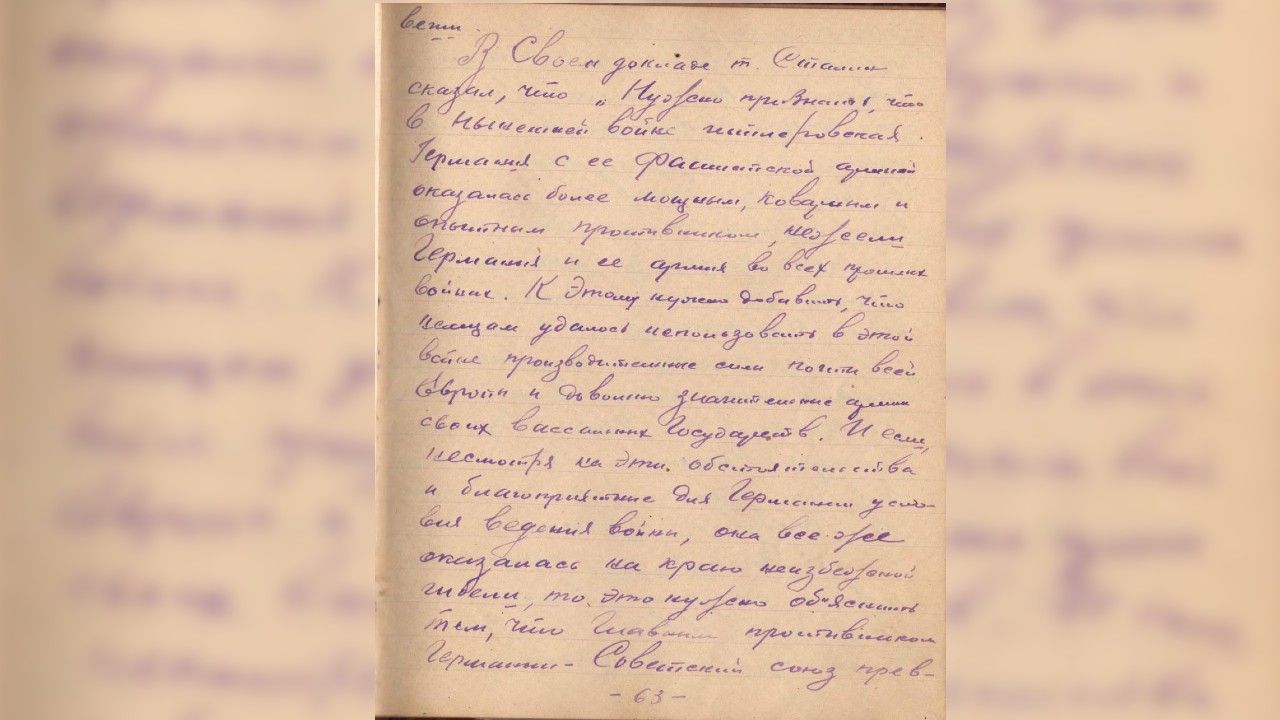 вети.
В Своем докладе т. Сталин
сказал, что „Нужно признать, что
в нынешней войне гитлеровская
Германия с ее фашистской армией
оказалась более мощным, коварным и
опытным противником, нежели
Германия и ее армия во всех прошлых
войнах. К этому нужно добавить, что
немцам удалось использовать в этой
войне производительные силы почти всей
Европы и довольно значительные армии
своих вассальных Государств. И если,
несмотря на эти обстоятельства
и благоприятные для Германии усло-
вия ведения войны, она все-же
оказалась на краю неизбежной
гибели, то это нужно объяснить
тем, что главный противником
Германии - Советский союз прев-
- 63 -